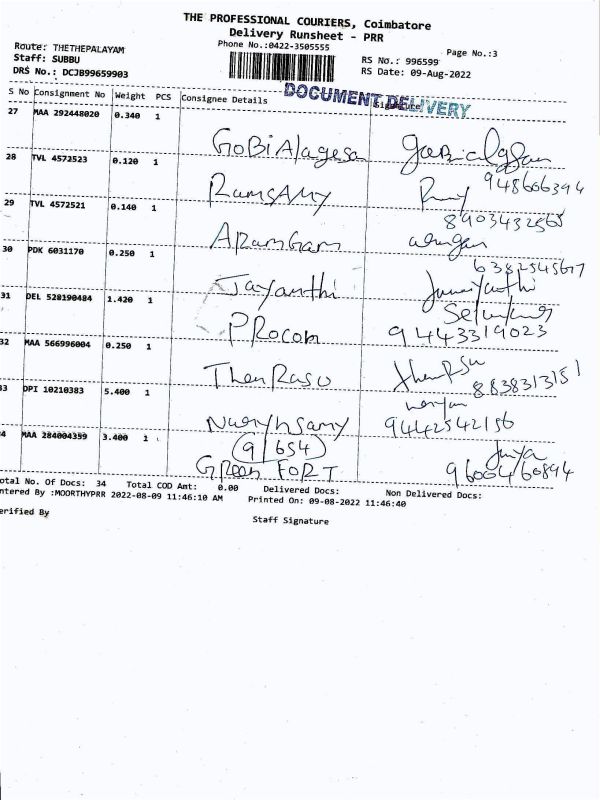 THE PROFESSIONAL COURIERS, Coimbatore
Delivery Runsheet - PRR
Phone No.:0422-3505555
Page No.:3
Route: THETHEPALAYAM
Staff: SUBBU
DRS No.: DCJB99659903
RS No.: 996599
RS Date: 09-Aug-2022
DOCUMENT DELIVERY
S No Consignment No Weight PCS Consignee Details Signature
27 MAA 292448020 0.340 1
GoBiAlagesan
948606394
28 TVL 4572523 0.120 1
RamSAMY
8903432565
29 TVL 4572521 0.140 1
ARamGam
6382545677
30 PDK 6031170 0.250 1
Jayanthi
31 DEL 528190484 1.420 1
PRocom
9443319023
32 MAA 566996004 0.250 1
ThenRasu
8838313151
33 DPI 10210383 5.400 1
9442542156
34 MAA 284004359 3.400 1
9/654
GReen FoRT
9600460894
Total No. Of Docs: 34 Total COD Amt: 0.00 Delivered Docs: Non Delivered Docs:
ntered By :MOORTHYPRR 2022-08-09 11:46:10 AM Printed On: 09-08-2022 11:46:40
erified By
Staff Signature